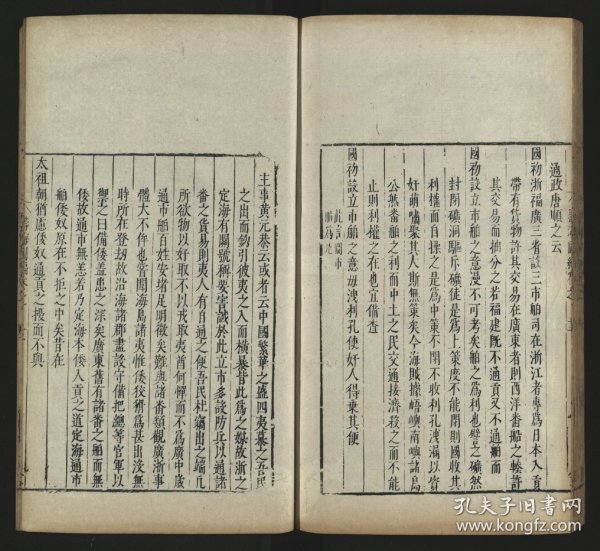 通政唐順之云
國初浙福廣三省設三市舶司在浙江者專爲日本入貢
帶有貨物許其交易在廣東者則西洋番舶之輳許
其交易而抽分之若福建既不通貢又不通舶而
國初設立市舶之意漫不可考矣舶之爲利也譬之礦然
封閉礦洞驅斥礦徒是爲上策度不能閉則國收其
利權而自操之是爲中策不閉不收利孔洩漏以資
奸萌嘯聚其人斯無策矣今海賊據峿嶼南嶼諸島
公然番舶之利而中土之民交通接濟殺之而不能
止則利權之在也宜備查
國初設立市舶之意毋洩利孔使奸人得乘其便
此言開市
舶爲是
主事黃元恭云或者云中國繁華之盛四夷慕之吾民
之出而鉤引彼夷之入而橫暴皆此爲之媒故浙之
定海有關號稱要害誠於此立市多設防兵以通諸
番之貨易則夷人有自通之便吾民杜竊出之端凡
所欲物以好取不以戎取夷酋何憚而不爲廣中歲
通市舶百姓安堵足明徵矣難與諸番類觀廣浙事
體大不侔也嘗聞海島諸夷惟倭狡猾爲甚出沒無
時所在登刼故沿海諸郡盡設守備把總等官軍以
禦之曰備倭蓋患之深矣廣東舊有諸番之舶而無
倭故通市無恙若乃定海本倭人貢之道定海通市
舶倭奴原在不拒之中矣昔在
太祖朝猶慮倭奴通貢之擾而不與
孔夫子旧书网
www.kongfz.com